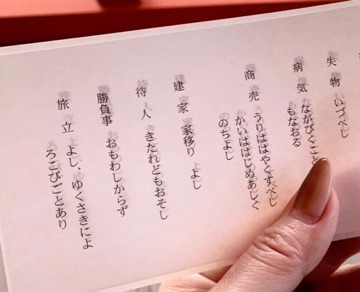 失物 いづべし
病気 ながびくこと
もなおる
商売 うりははやくすべし
かいははじめあしく
のちよし
建家 家移り よし
待人 きたれどもおそし
勝負事 おもわしからず
旅立 よし、ゆくさきによ
ろこびごとあり